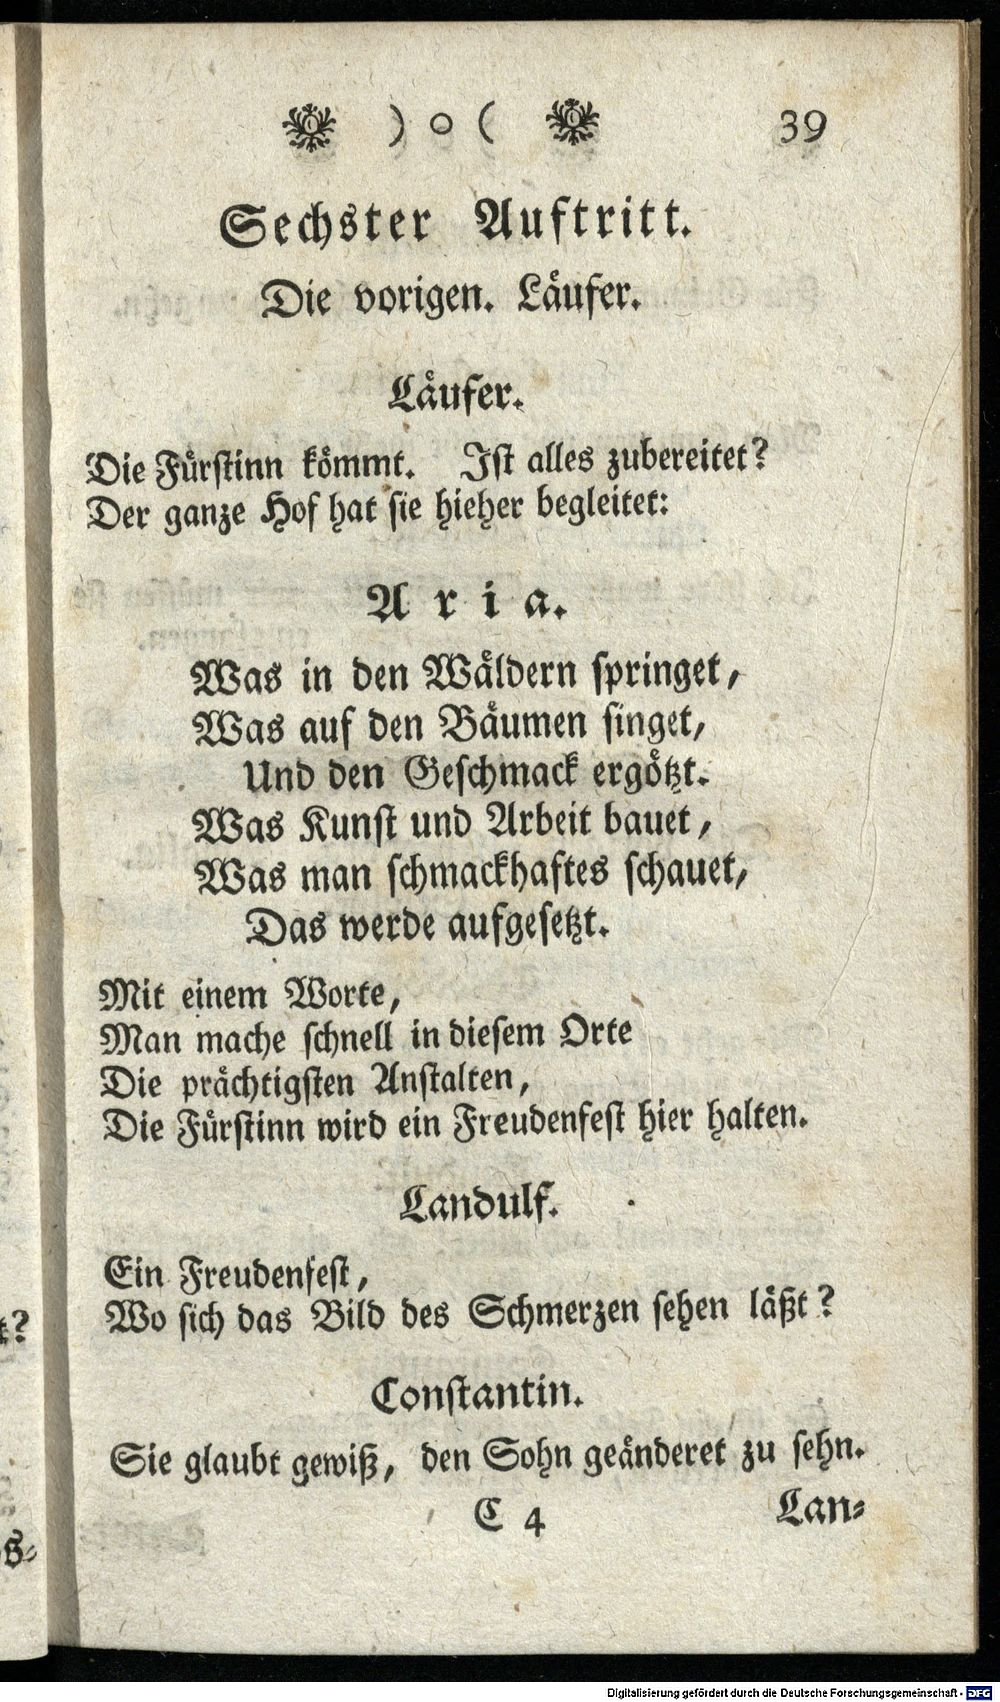 ) o ( 39
Sechster Auftritt.
Die vorigen. Läufer.
Läufer.
Die Fürstinn kömmt. Ist alles zubereitet?
Der ganze Hof hat sie hieher begleitet:
Aria.
Was in den Wäldern springet,
Was auf den Bäumen singet,
Und den Geschmack ergötzt.
Was Kunst und Arbeit bauet,
Was man schmackhaftes schauet,
Das werde aufgesetzt.
Mit einem Worte,
Man mache schnell in diesem Orte
Die prächtigsten Anstalten,
Die Fürstinn wird ein Freudenfest hier halten.
Landulf.
Ein Freudenfest,
Wo sich das Bild des Schmerzen sehen läßt?
Constantin.
Sie glaubt gewiß, den Sohn geänderet zu sehn.
C 4 Lan-
Digitalisierung gefördert durch die Deutsche Forschungsgemeinschaft - DFG